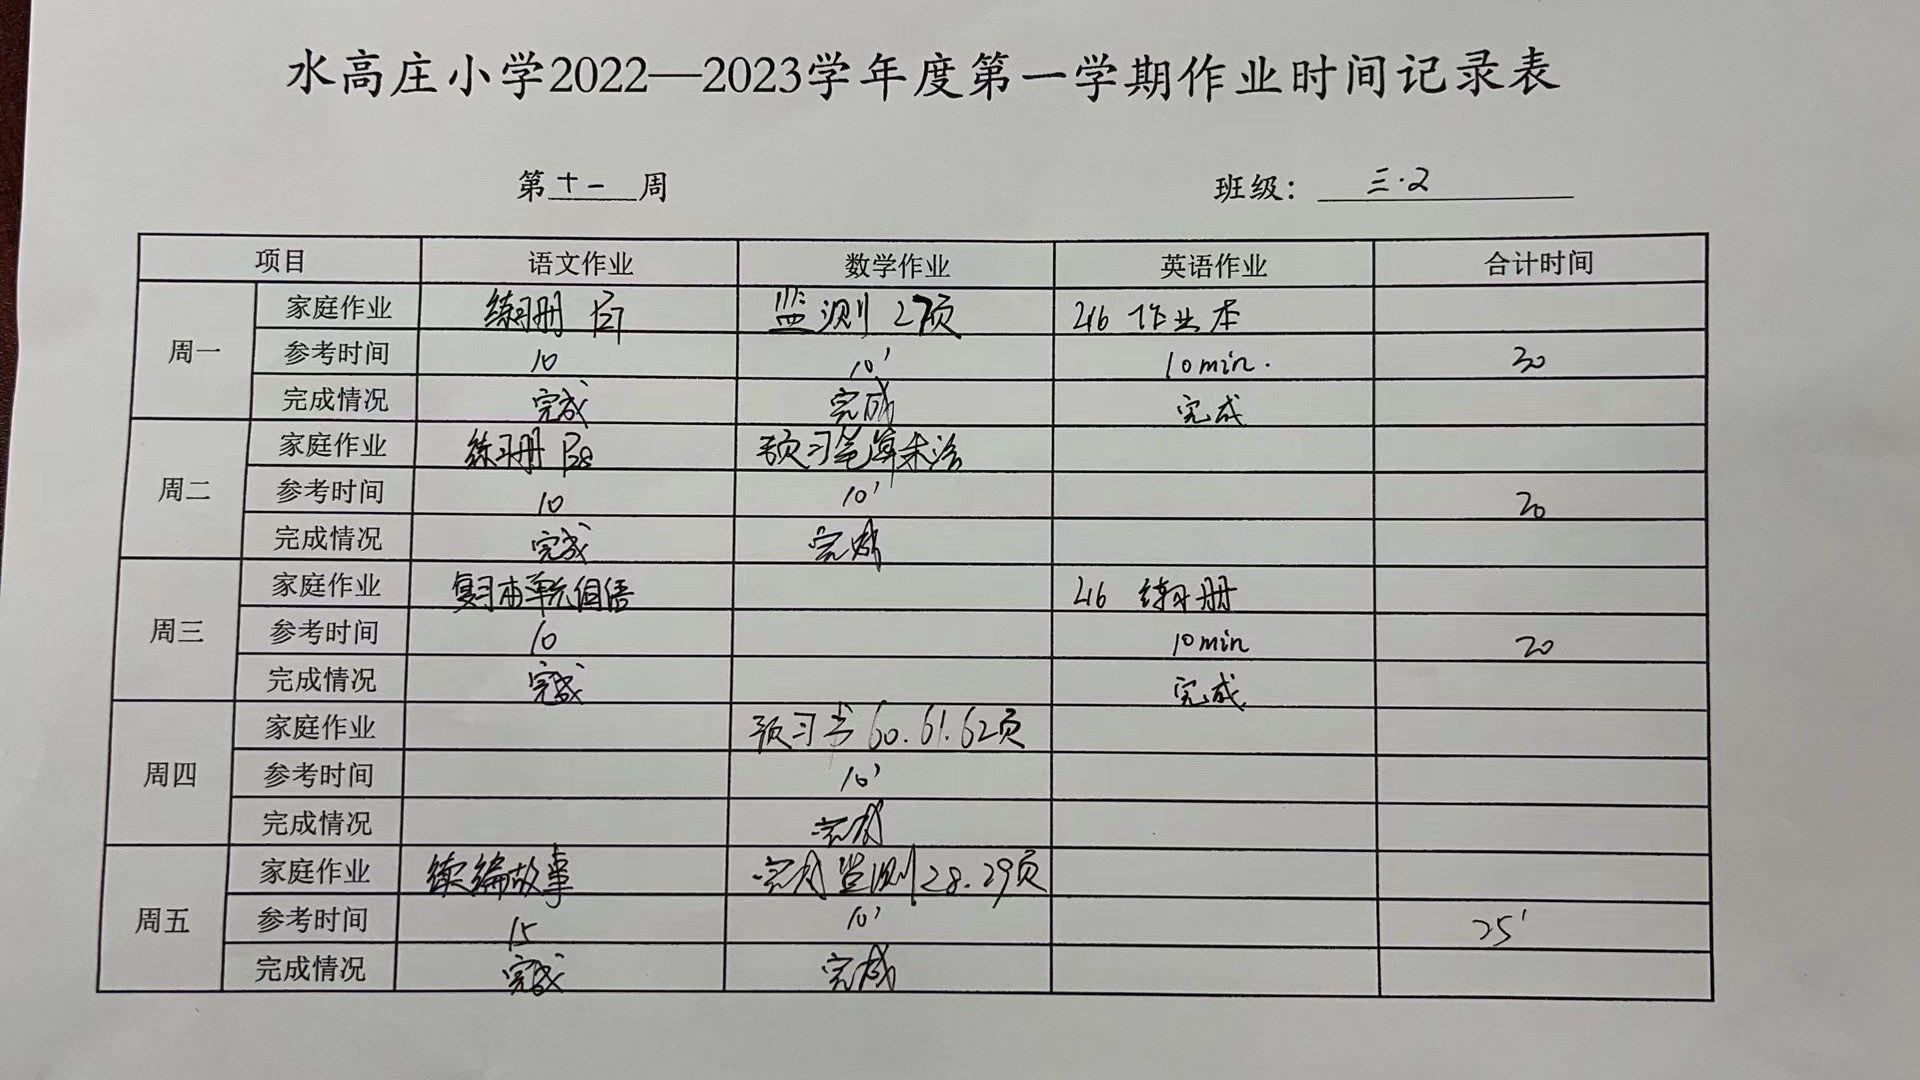 水高庄小学2022—2023学年度第一学期作业时间记录表
第十一周 班级：三·2
项目 语文作业 数学作业 英语作业 合计时间
周一 家庭作业 练习册 监测27页 2.16 作业本
参考时间 10 10' 10min. 30
完成情况 完成 完成 完成
周二 家庭作业 练习册 预习笔算乘法
参考时间 10 10' 20
完成情况 完成 完成
周三 家庭作业 复习本单元组语 练习册
参考时间 10 10min 20
完成情况 完成 完成
周四 家庭作业 预习书60.61.62页
参考时间 10'
完成情况 完成
周五 家庭作业 续编故事 完成监测28.29页
参考时间 15 10' 25'
完成情况 完成 完成